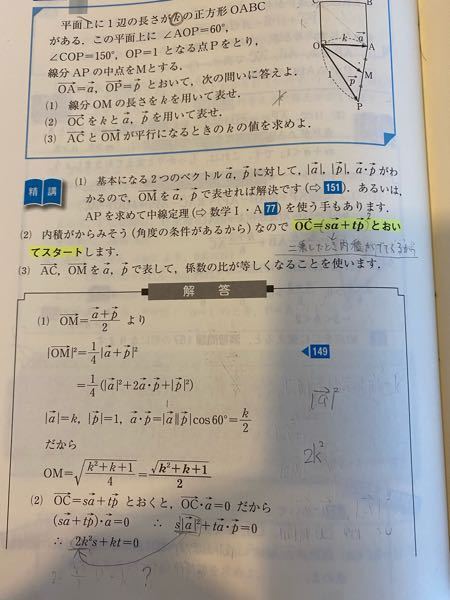 平面上に1辺の長さがkの正方形OABC
がある．この平面上に ∠AOP=60°，
∠COP=150°，OP=1 となる点Pをとり，
線分APの中点をMとする．
OA→=a→，OP→=p→ とおいて，次の問いに答えよ．
(1) 線分OMの長さをkを用いて表せ．
(2) OC→をkとa→，p→を用いて表せ．
(3) AC→とOM→が平行になるときのkの値を求めよ．
C
B
O
k
a→
A
M
p→
1
P
k
精講
(1) 基本になる2つのベクトルa→，p→に対して，|a→|，|p→|，a→・p→がわ
かるので，OM→をa→，p→で表せれば解決です(⇨151)．あるいは，
APを求めて中線定理(⇨数学Ⅰ・A77)を使う手もあります．
(2) 内積がからみそう(角度の条件があるから)なので OC→=sa→+tp→とおい
てスタートします．
二乗したとき内積がでてくるから
(3) AC→，OM→をa→，p→で表して，係数の比が等しくなることを使います．
解答
(1) OM→=(a→+p→)/2 より
|OM→|²=1/4|a→+p→|²
149
=1/4(|a→|²+2a→・p→+|p→|²)
|a→|=k，|p→|=1，a→・p→=|a→||p→|cos60°=k/2
|a→|²
だから
2k²
OM=√((k²+k+1)/4)=√(k²+k+1)/2
(2) OC→=sa→+tp→ とおくと，OC→・a→=0 だから
(sa→+tp→)・a→=0 ∴ s|a→|²+ta→・p→=0
∴ 2k²s+kt=0
?